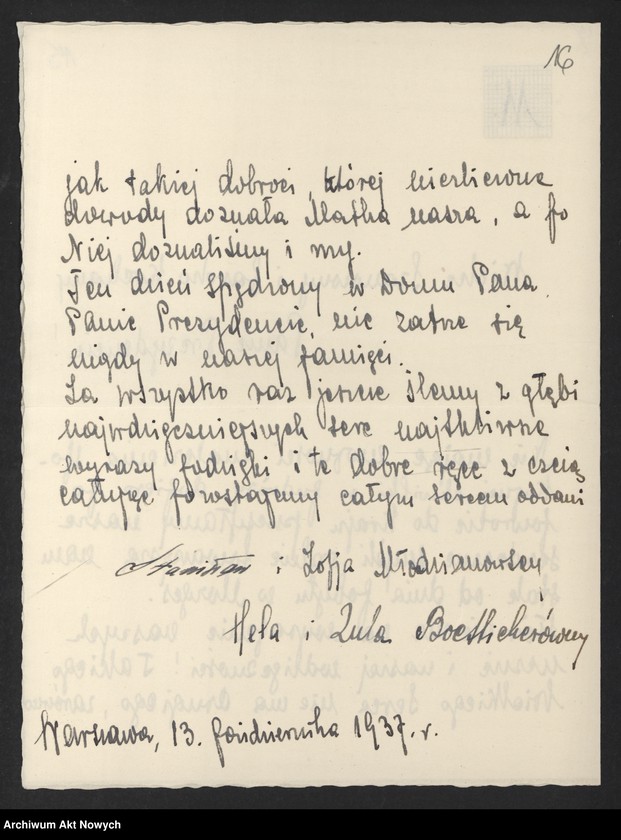 16
jak takiej dobroci, której niezliczone
dowody doznała Matka nasza, a po
Niej doznaliśmy i my.
Ten dzień spędzony w Domu Pana
Panie Prezydencie, nie zatrze się
nigdy w naszej pamięci.
Za wszystko raz jeszcze ślemy z głębi
najwdzięczniejszych serc najtkliwsze
wyrazy podzięki i te dobre ręce z czcią
całując pozostajemy całym sercem oddani
Stanisław i Zofja Młodzianowscy
i
Hela i Lula Boetticherówny
Warszawa, 13. października 1937. r.
Archiwum Akt Nowych